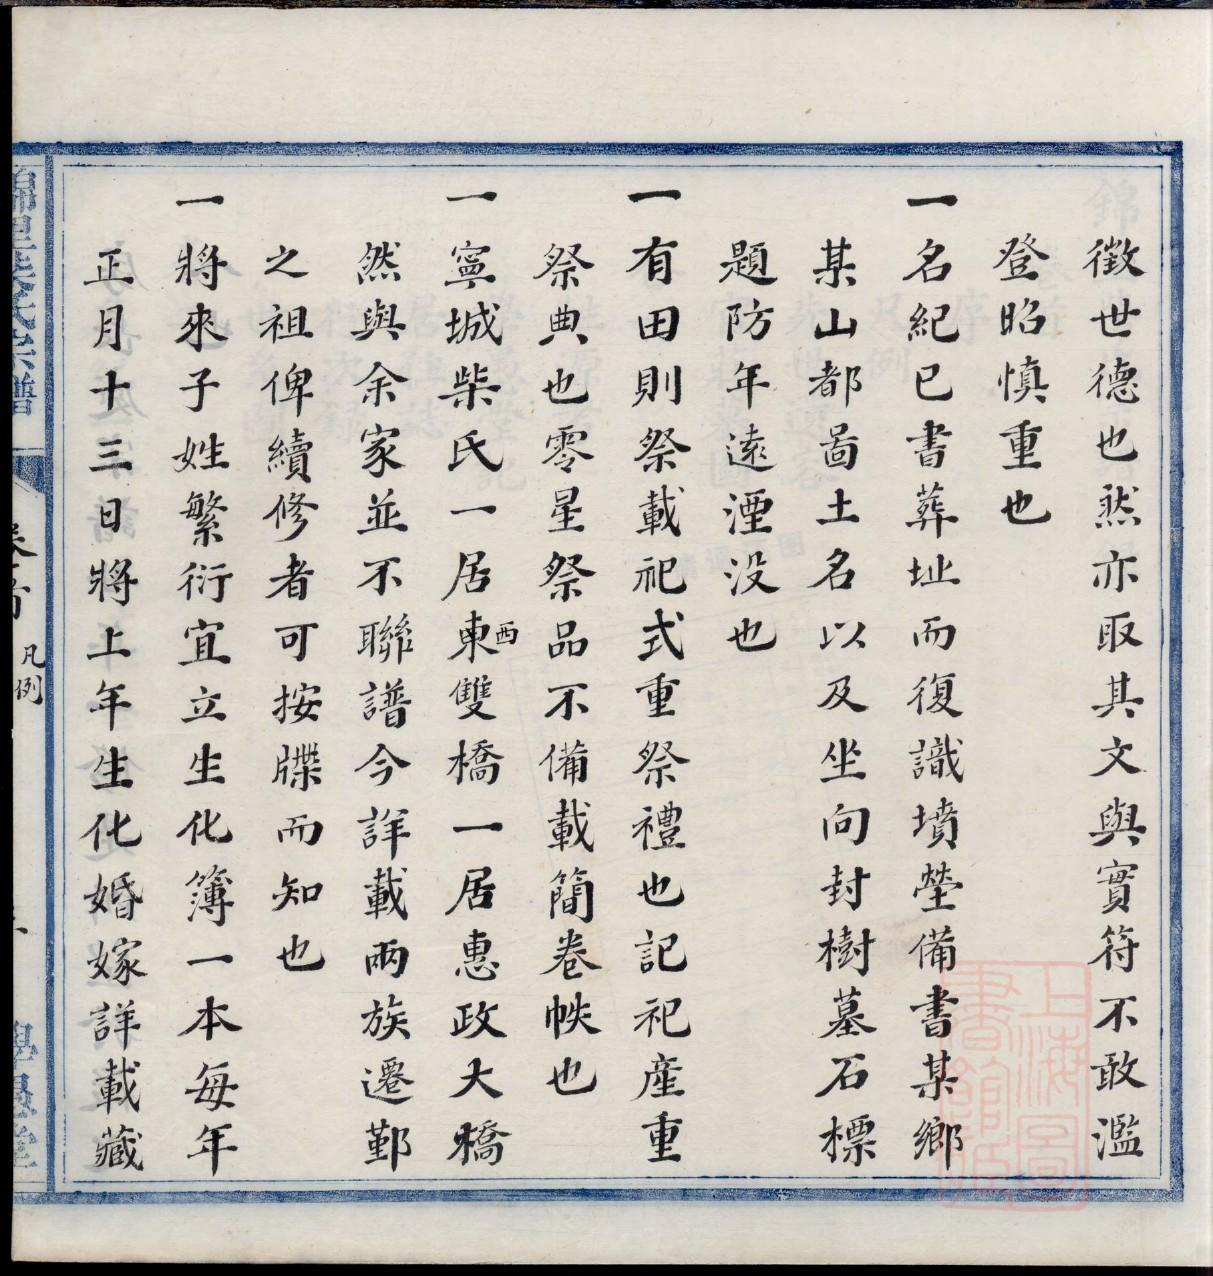 徵世德也然亦取其文與實符不敢濫
登昭慎重也
一名紀已書葬址而復識墳塋備書某鄉
某山都啚土名以及坐向封樹墓石標
題防年遠湮没也
一有田則祭載祀式重祭禮也記祀産重
祭典也零星祭品不備載簡卷帙也
一寧城柴氏一居東西雙橋一居惠政大橋
然與余家並不聯譜今詳載兩族遷鄞
之祖俾續修者可按牒而知也
一將來子姓繁衍宜立生化簿一本每年
正月十三日將上年生化婚嫁詳載藏
凡例
上海圖書館藏